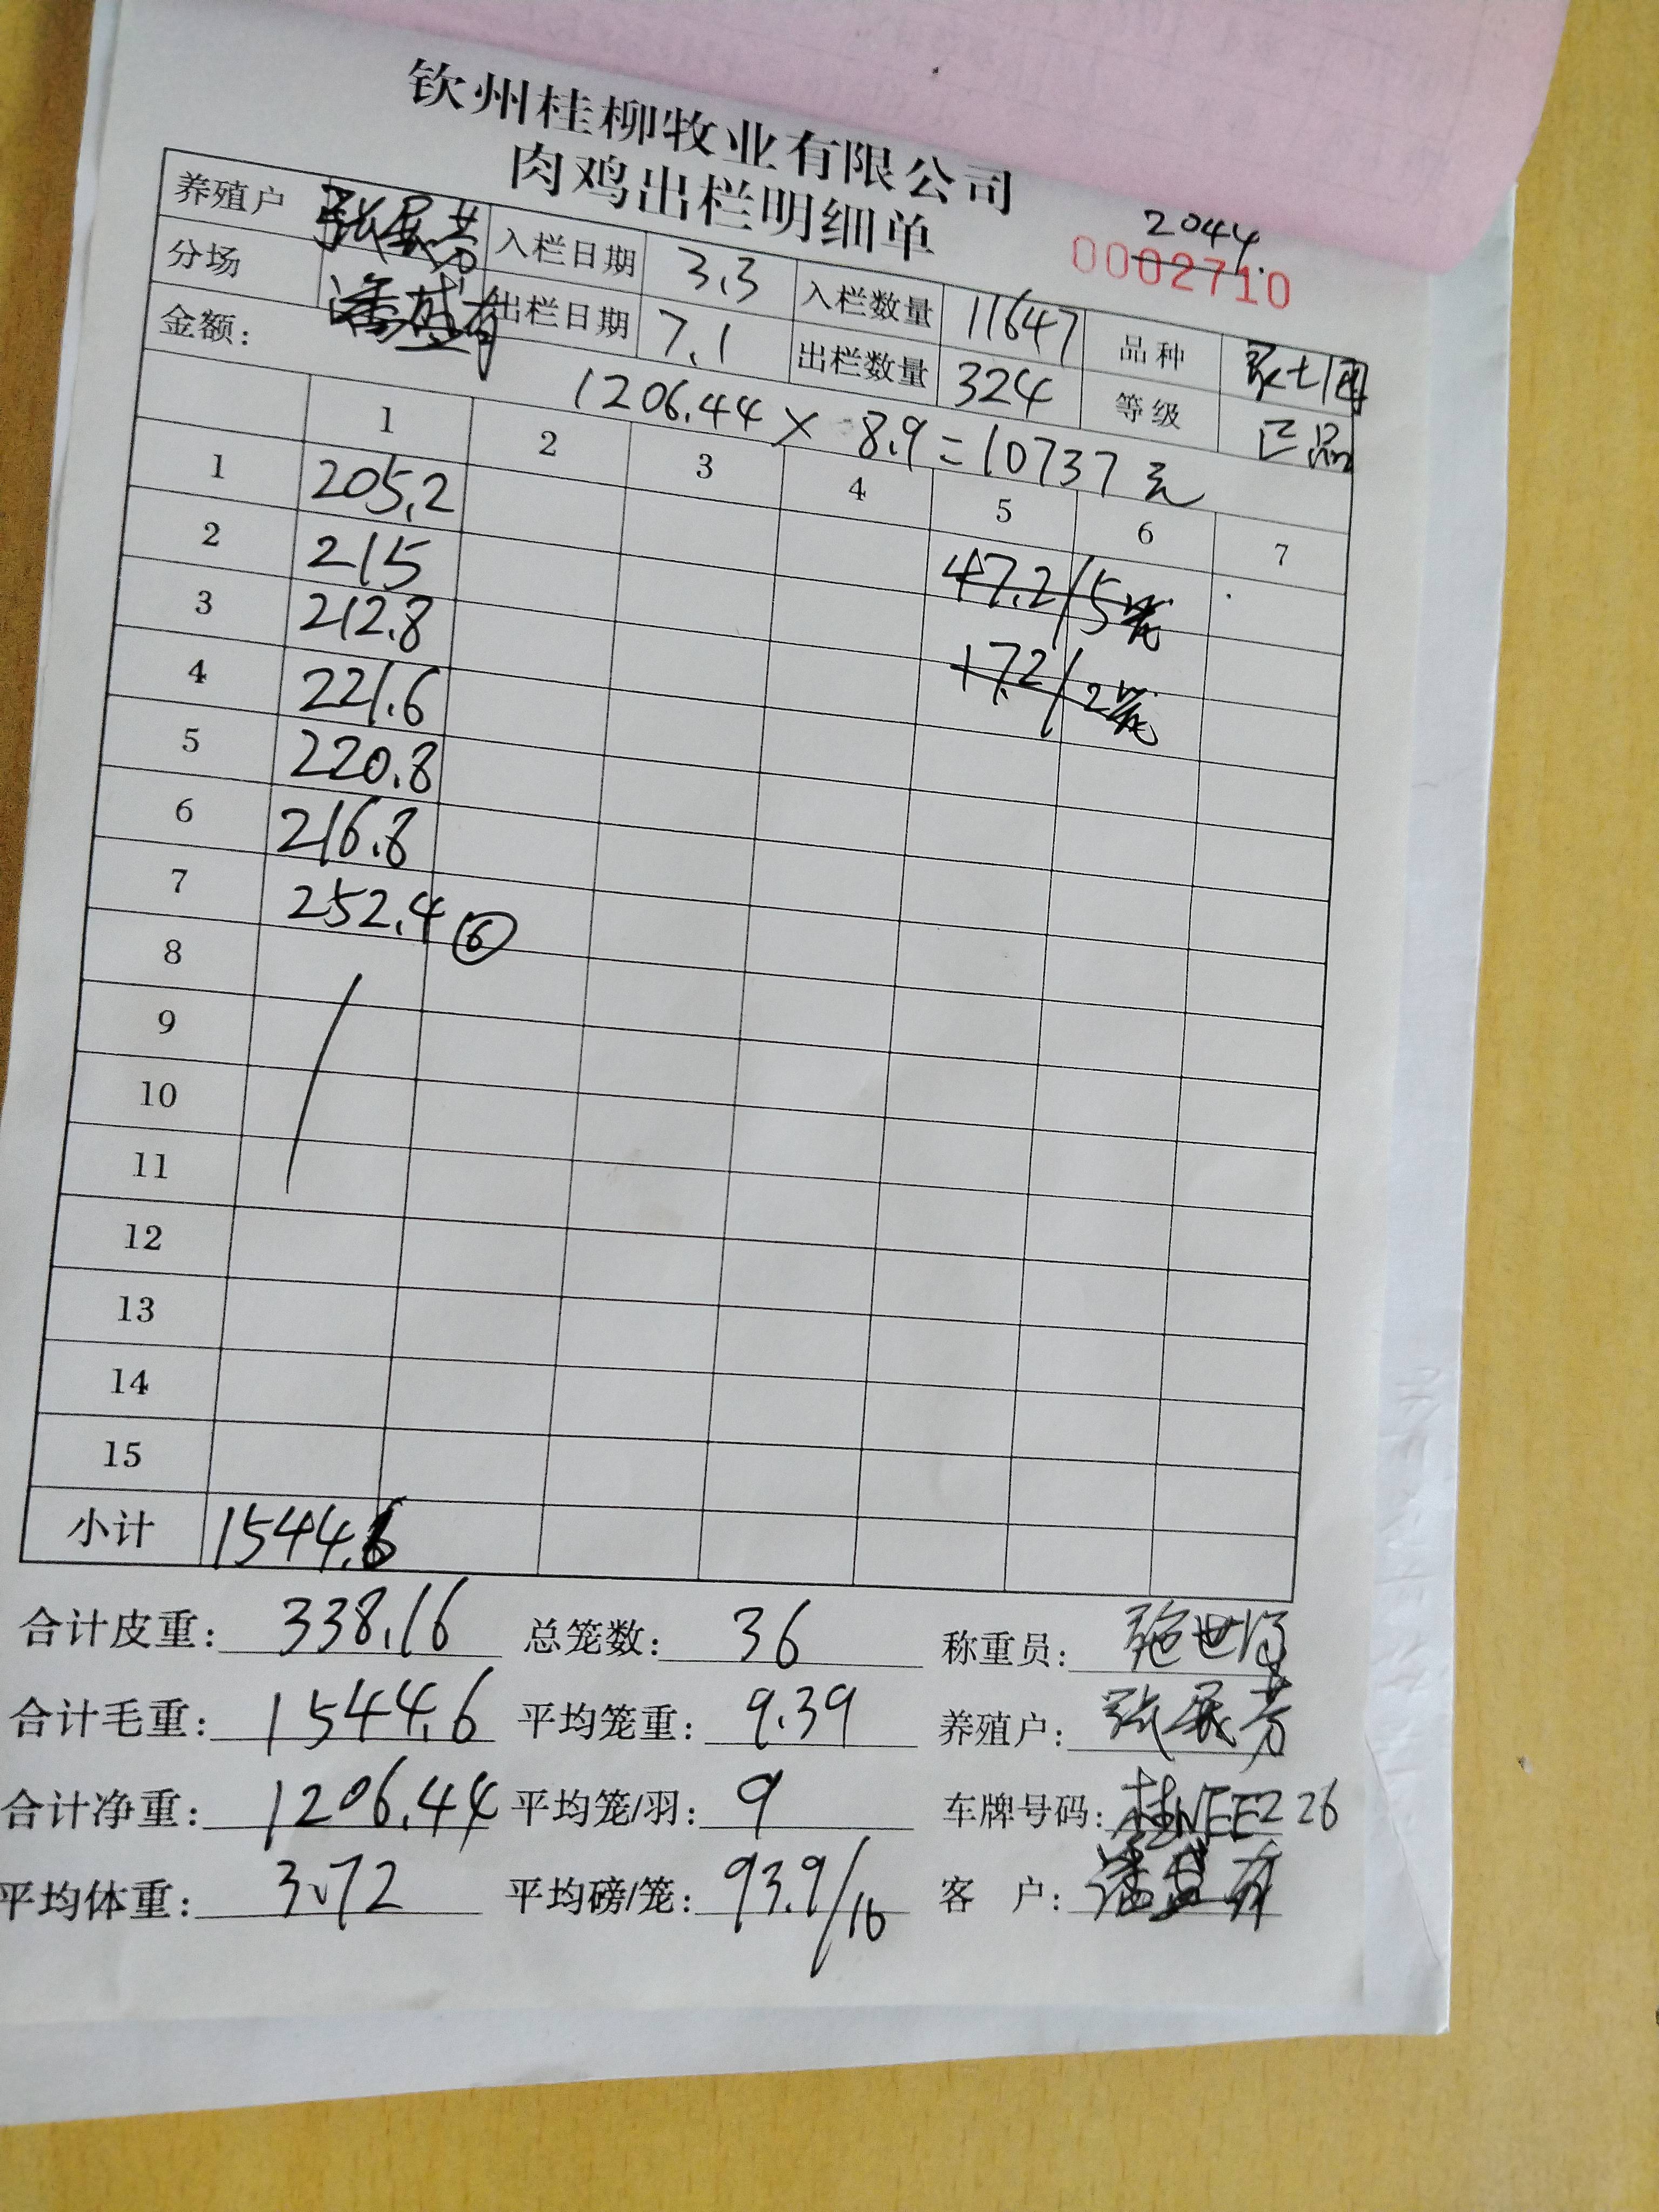 钦州桂柳牧业有限公司
肉鸡出栏明细单
2044.
0002710
养殖户 张展芳 入栏日期 3.3 入栏数量 11647 品种
分场 出栏日期 7.1 出栏数量 324 等级 正品
金额: 1206.44 × 8.9 = 10737元
1 2 3 4 5 6 7
1 205.2 47.2/5
2 215 17.2/2
3 212.8
4 221.6
5 220.8
6 216.8
7 252.4 ⑥
8
9
10
11
12
13
14
15
小计 1544.6
合计皮重: 338.16 总笼数: 36 称重员:
合计毛重: 1544.6 平均笼重: 9.39 养殖户: 张展芳
合计净重: 1206.44 平均笼/羽: 9 车牌号码: 桂NEE226
平均体重: 3.72 平均磅/笼: 93.9/10 客 户: